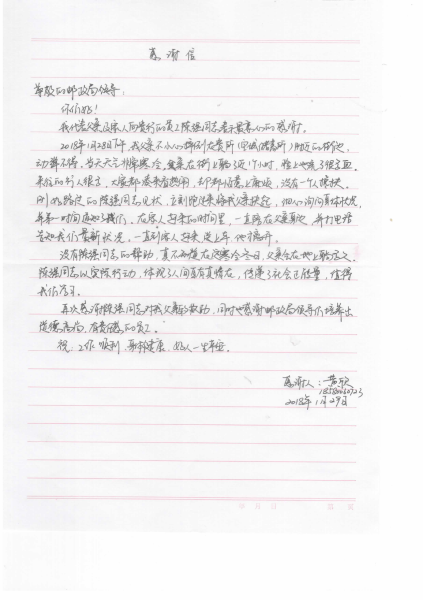 感谢信
尊敬的邮政局领导：
你们好！
我代表父亲及家人向贵行的员工陈强同志表示最衷心的感谢。
2018年1月28日下午，我父亲不小心摔倒在贵所(储蓄所)附近的街边，
动弹不得，当天天气非常寒冷，父亲在街上躺了近1个小时，脸上也流了很多血
来往的行人很多，大家都看热闹，没有一人搀扶，
刚好路过的陈强同志见状，立刻跑过来将我父亲扶起，细心询问具体状况，
并第一时间通知了我们，在家人赶来的时间里，一直陪在父亲身边，并打电话
告知我们最新状况，一直到家人赶来送上车他才离开。
没有陈强同志的帮助，真不知道在这寒冷冬日，父亲会在地上躺多久。
陈强同志以实际行动，体现了人间自有真情在，传递了社会正能量，值得
我们学习。
再次感谢陈强同志对我父亲的救助，同时也感谢邮政局领导们培养出
道德高尚、有责任感的员工。
祝：工作顺利，身体健康，好人一生平安。
感谢人：黄欣
2018年1月29日